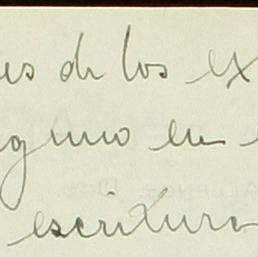 es de los ex
guno en
escritura